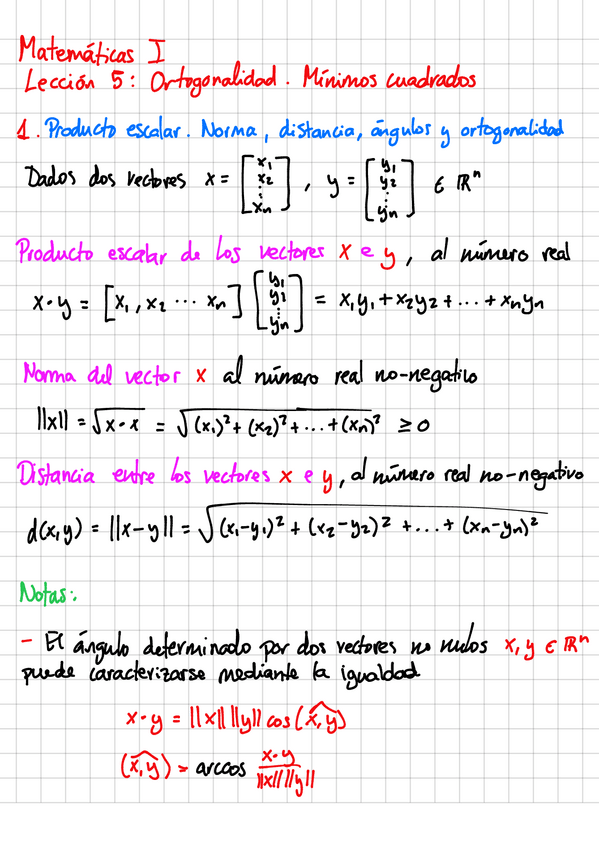 Matemáticas I
Lección 5: Ortogonalidad. Mínimos cuadrados
1. Producto escalar. Norma, distancia, ángulos y ortogonalidad
Dados dos vectores x = [x₁ x₂ ⋮ xₙ], y = [y₁ y₂ ⋮ yₙ] ∈ ℝⁿ
Producto escalar de los vectores x e y, al número real
x·y = [x₁, x₂ ··· xₙ] [y₁ y₂ ⋮ yₙ] = x₁y₁ + x₂y₂ + ... + xₙyₙ
Norma del vector x al número real no-negativo
||x|| = √x·x = √(x₁)² + (x₂)² + ... + (xₙ)² ≥ 0
Distancia entre los vectores x e y, al número real no-negativo
d(x,y) = ||x-y|| = √(x₁-y₁)² + (x₂-y₂)² + ... + (xₙ-yₙ)²
Notas:
- El ángulo determinado por dos vectores no nulos x, y ∈ ℝⁿ
puede caracterizarse mediante la igualdad
x·y = ||x|| ||y|| cos(x,y)
(x,y) = arccos x·y / ||x|| ||y||